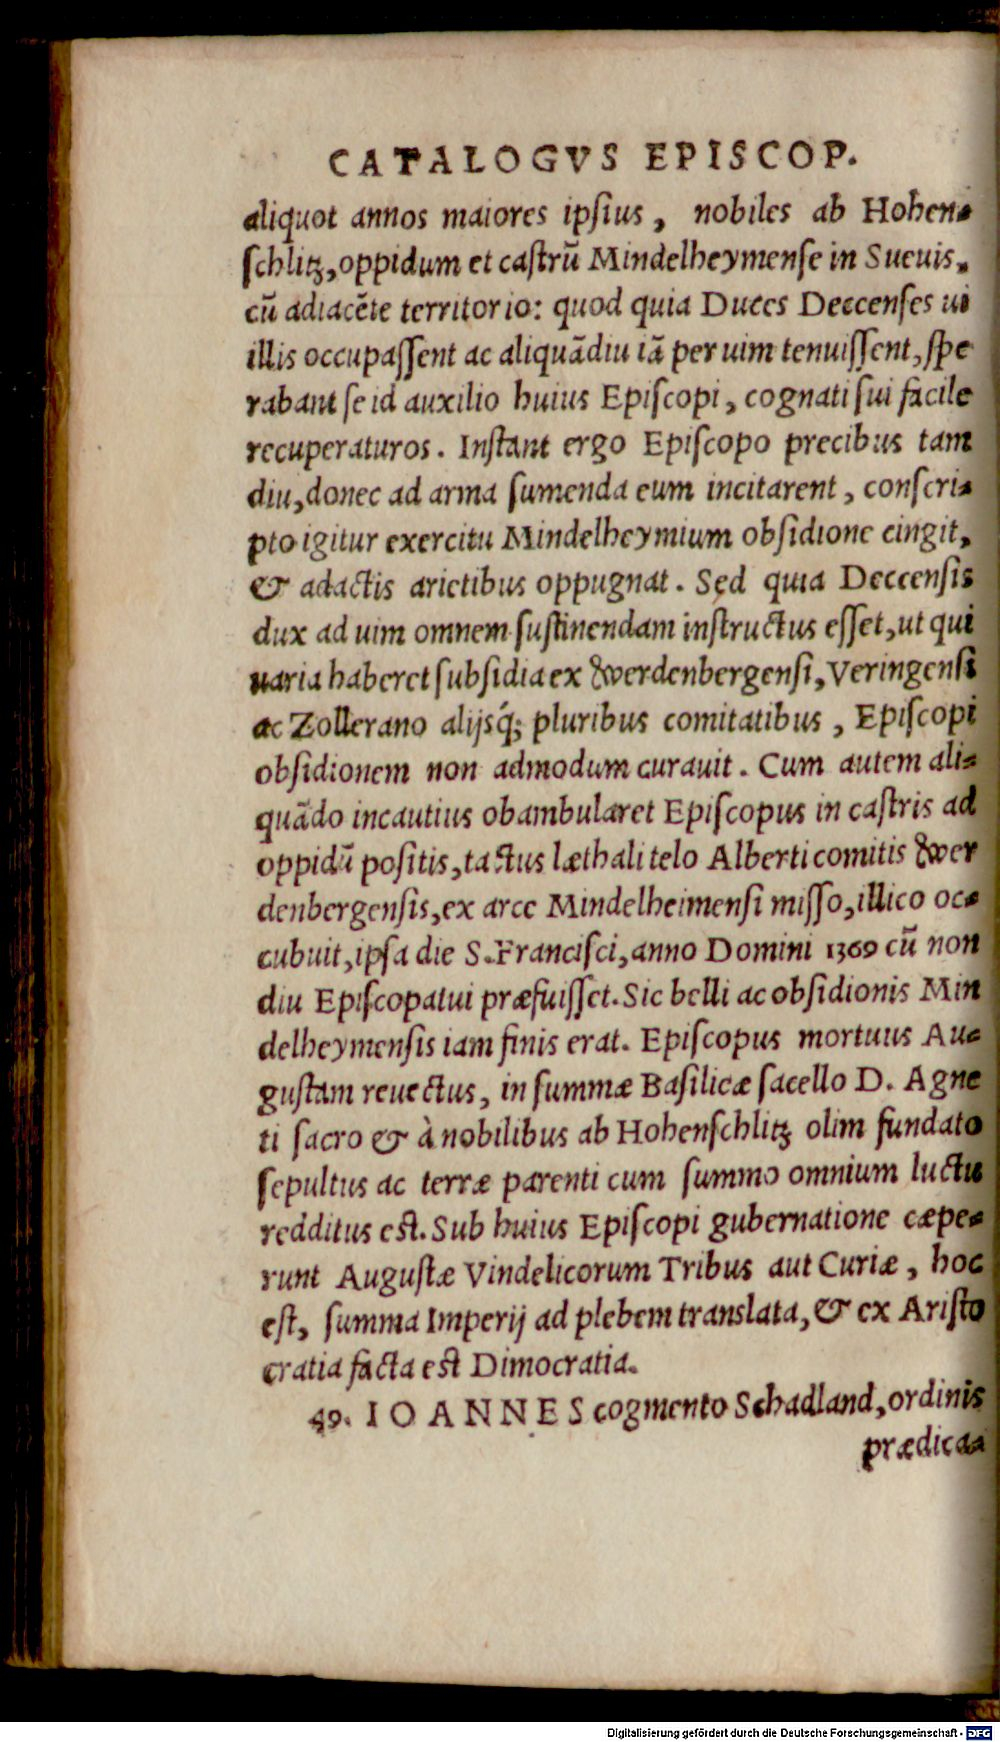 CATALOGVS EPISCOP.
aliquot annos maiores ipſius, nobiles ab Hohen-
ſchlitz, oppidum et caſtrū Mindelheymenſe in Sueuis,
cū adiacēte territorio: quod quia Duces Deccenſes ui
illis occupaſſent ac aliquādiu iā per uim tenuiſſent, ſpe
rabant ſe id auxilio huius Epiſcopi, cognati ſui facile
recuperaturos. Inſtant ergo Epiſcopo precibus tam
diu, donec ad arma ſumenda eum incitarent, conſcri-
pto igitur exercitu Mindelheymium obſidione cingit,
& adactis arietibus oppugnat. Sęd quia Deccenſis
dux ad uim omnem ſuſtinendam inſtructus eſſet, ut qui
uaria haberet ſubſidia ex Werdenbergenſi, Veringenſi
ac Zollerano alijsq́; pluribus comitatibus, Epiſcopi
obſidionem non admodum curauit. Cum autem ali-
quādo incautius obambularet Epiſcopus in caſtris ad
oppidū poſitis, tactus læthali telo Alberti comitis Wer
denbergenſis, ex arce Mindelheimenſi miſſo, illico oc-
cubuit, ipſa die S. Franciſci, anno Domini 1369 cū non
diu Epiſcopatui præfuiſſet. Sic belli ac obſidionis Min
delheymenſis iam finis erat. Epiſcopus mortuus Au-
guſtam reuectus, in ſummæ Baſilicæ ſacello D. Agne
ti ſacro & à nobilibus ab Hohenſchlitz olim fundato
ſepultus ac terræ parenti cum ſummo omnium luctu
redditus eſt. Sub huius Epiſcopi gubernatione cæpe-
runt Auguſtæ Vindelicorum Tribus aut Curiæ, hoc
eſt, ſumma Imperij ad plebem translata, & ex Ariſto
cratia facta eſt Dimocratia.
49. IOANNES cogmento Schadland, ordinis
prædica-
Digitalisierung gefördert durch die Deutsche Forschungsgemeinschaft - DFG